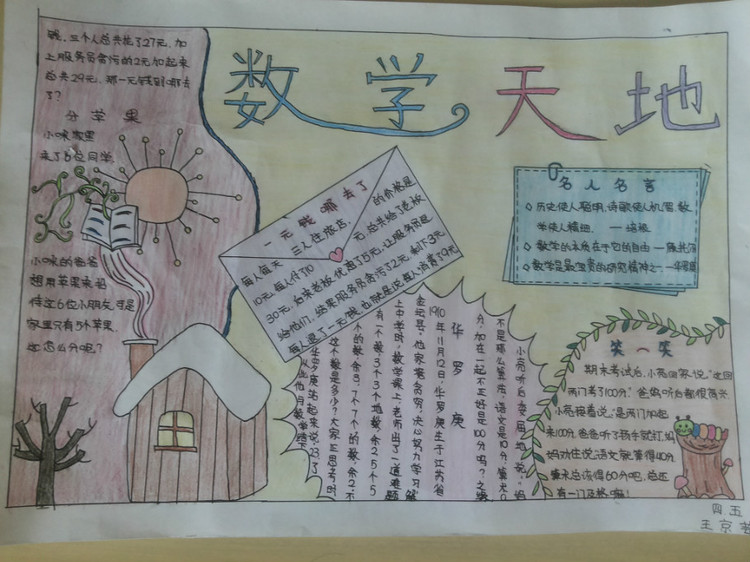 数学天地
钱，三个人总共花了27元，加
上服务员贪污的2元加起来
总共29元，那一元钱到哪去
了？
分苹果
小咪家里
来了6位同学，
小咪的爸爸
想用苹果来招
待这6位小朋友，可是
家里只有5个苹果，
怎么分呢？
一元钱哪去了
三人住旅店，
每人每天
的价格是
10元，每人付了10
元，总共给了老板
30元，后来老板优惠了5元，让服务员退
给他们，结果服务员贪污了2元，剩下3元
每人退了一元钱，也就是说每人消费了9元
名人名言
历史使人聪明，诗歌使人机智，数
学使人精细。——培根
数学的本质在于它的自由——康托尔
数学是最宝贵的研究精神之一——华罗庚
华罗庚
1910年11月12日，华罗庚生于江苏省
金坛县，他家境贫穷，决心努力学习
上中学时，数学课上，老师出了一道难题
有一个数，3个3个地数余2，5个5
个的数余3，7个7个的数余2，
这个数是多少？大家正思考时
华罗庚站起来说：23
笑一笑
期末考试后，小亮回家说：“这回
两门考了100分。”爸妈听后都很高兴
小亮接着说：“是两门加起
来100分。”爸爸听了扬手就打，妈
妈劝住说：语文就算得40分
算术总该得60分吧，总还
有一门及格嘛！
小亮听后委屈地说：“妈
不是那么算法，语文是10分，算术0
分，加在一起不正好是100分吗？”
四五
王京